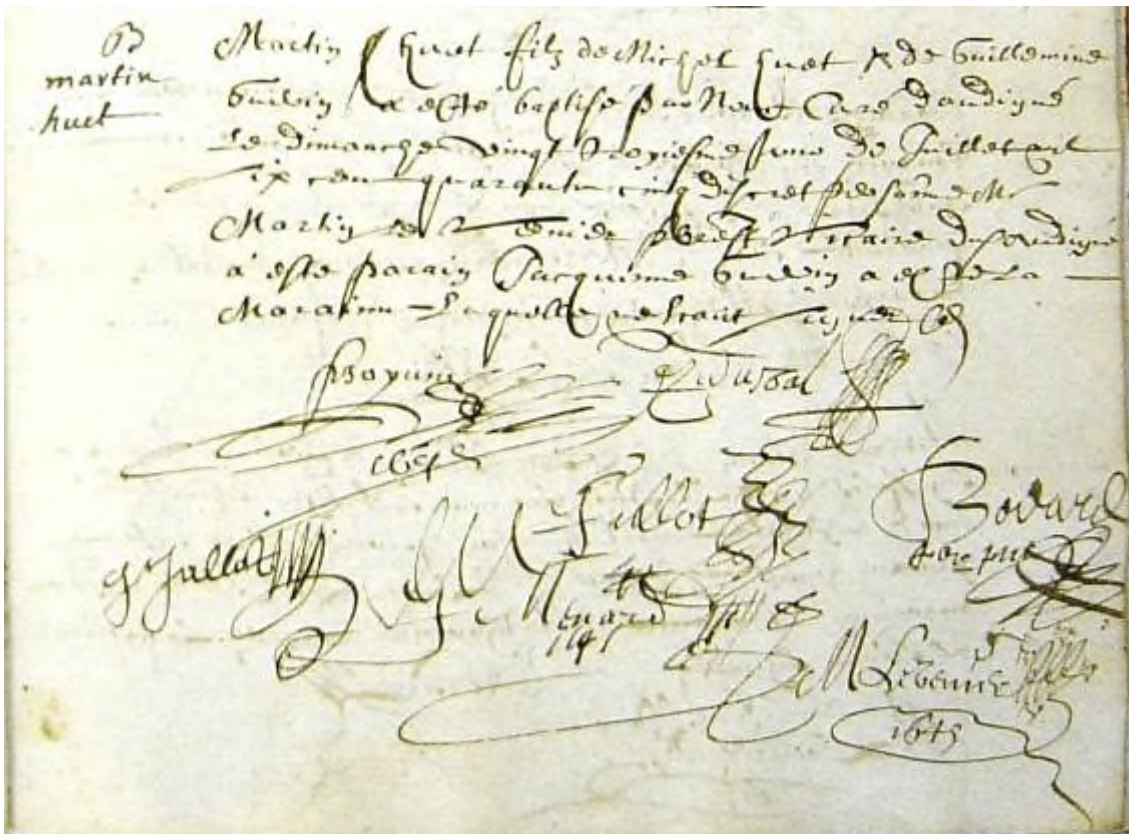 B
martin
huet
Martin huet filz de Michel huet & de Guillemine
Guivin a esté baptisé par Nous Curé dandigné
Le dimanche vingt troyiesme jour de Juillet mil
six cens quarante cinq discret personne Me
Martin prest vicaire dud andigné
a este parain Jacquinne Guivin a esté la
Maraine Laquelle ne scait signer
1645
Jallot
Jallot
Bodard
Menard
M Lebenier
1645